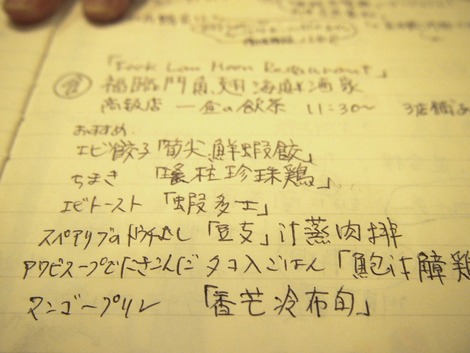 「Fook Lam Moon Restaurant」
福臨門魚翅海鮮酒家
高級店 一番の飲茶 11:30~ 3店舗
おすすめ
エビ餃子「筍尖鮮蝦餃」
ちまき 「瑤柱珍珠鶏」
エビトースト 「蝦多士」
スペアリブの 「豆支」汁蒸肉排
アワビスープでにこんだタコ入ごはん「鮑汁
マンゴープリン 「香芒冷布甸」